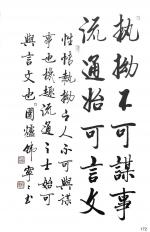 執拗不可謀事
流通始可言文
性情執拗之人不可與謀
事也機趣流通之士始可
與言文也圍爐佛寧之書
172